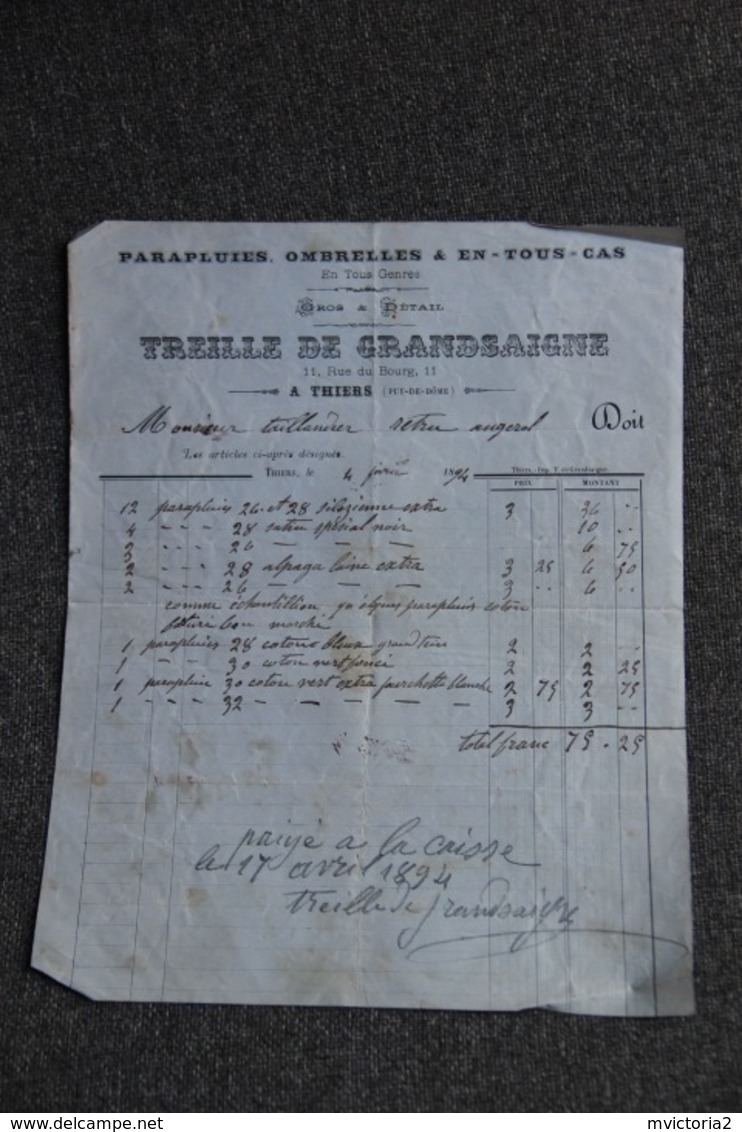 PARAPLUIES, OMBRELLES & EN-TOUS-CAS
En Tous Genres
GROS & DÉTAIL
TREILLE DE GRANDSAIGNE
11, Rue du Bourg, 11
A THIERS (PUY-DE-DÔME)
Monsieur taillandier Doit
Les articles ci-après désignés.
THIERS, le 4 1894 Thiers.-Imp.
PRIX MONTANT
12 parapluies 26 et 28 silezienne extra 3 36 --
4 - - - 28 satin spésial noir 10 --
3 - - - 26 — — — — 6 75
2 - - - 28 alpaga laine extra 3 25 6 50
2 - - - 26 — — — 3 -- 6 --
comme échantillion parapluis coton
bon marché
1 parapluies 28 coton bleux grand tein 2 2 --
1 - - 30 coton vert foncé 2 2 25
1 parapluie 30 coton vert extra fourchette blanche 2 75 2 75
1 - - - 32 - — — — — — 3 3 --
total franc 75 - 25
paiyé a la caisse
le 17 avril 1894
treille de grandsaigne
delcampe.net
mvictoria2